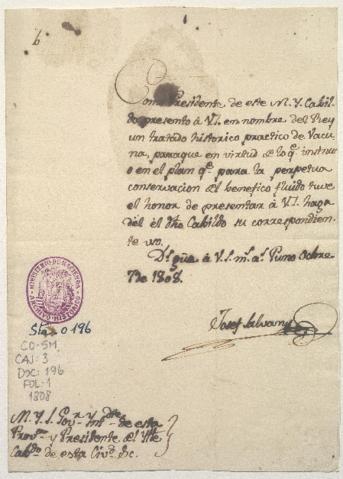 6
Como Presidente de este M. Y. Cabil-
do presento à V.S. en nombre del Rey
un tratado historico practico de Vacu-
na, para que en virtud de lo q.e instru-
o en el plan q.e para la perpetua
conservacion del benefico fluido tuve
el honor de presentar à V.S. haga
del el Ytre Cabildo su correspondien-
te uso.
D.s güe à V.S. m.s a.s Puno Octubre
7 de 1808.
Josef Salvany
MINISTERIO DE HACIENDA
ARCHIVO HISTORICO
0196
CO-SM
CAJ: 3
DOC: 196
FOL: 1
1808
M. Y. S. Gov.r Y Int.dte de esta
Prov.a y Presidente del Ytte
Cab.do de esta Ciu.d &c.